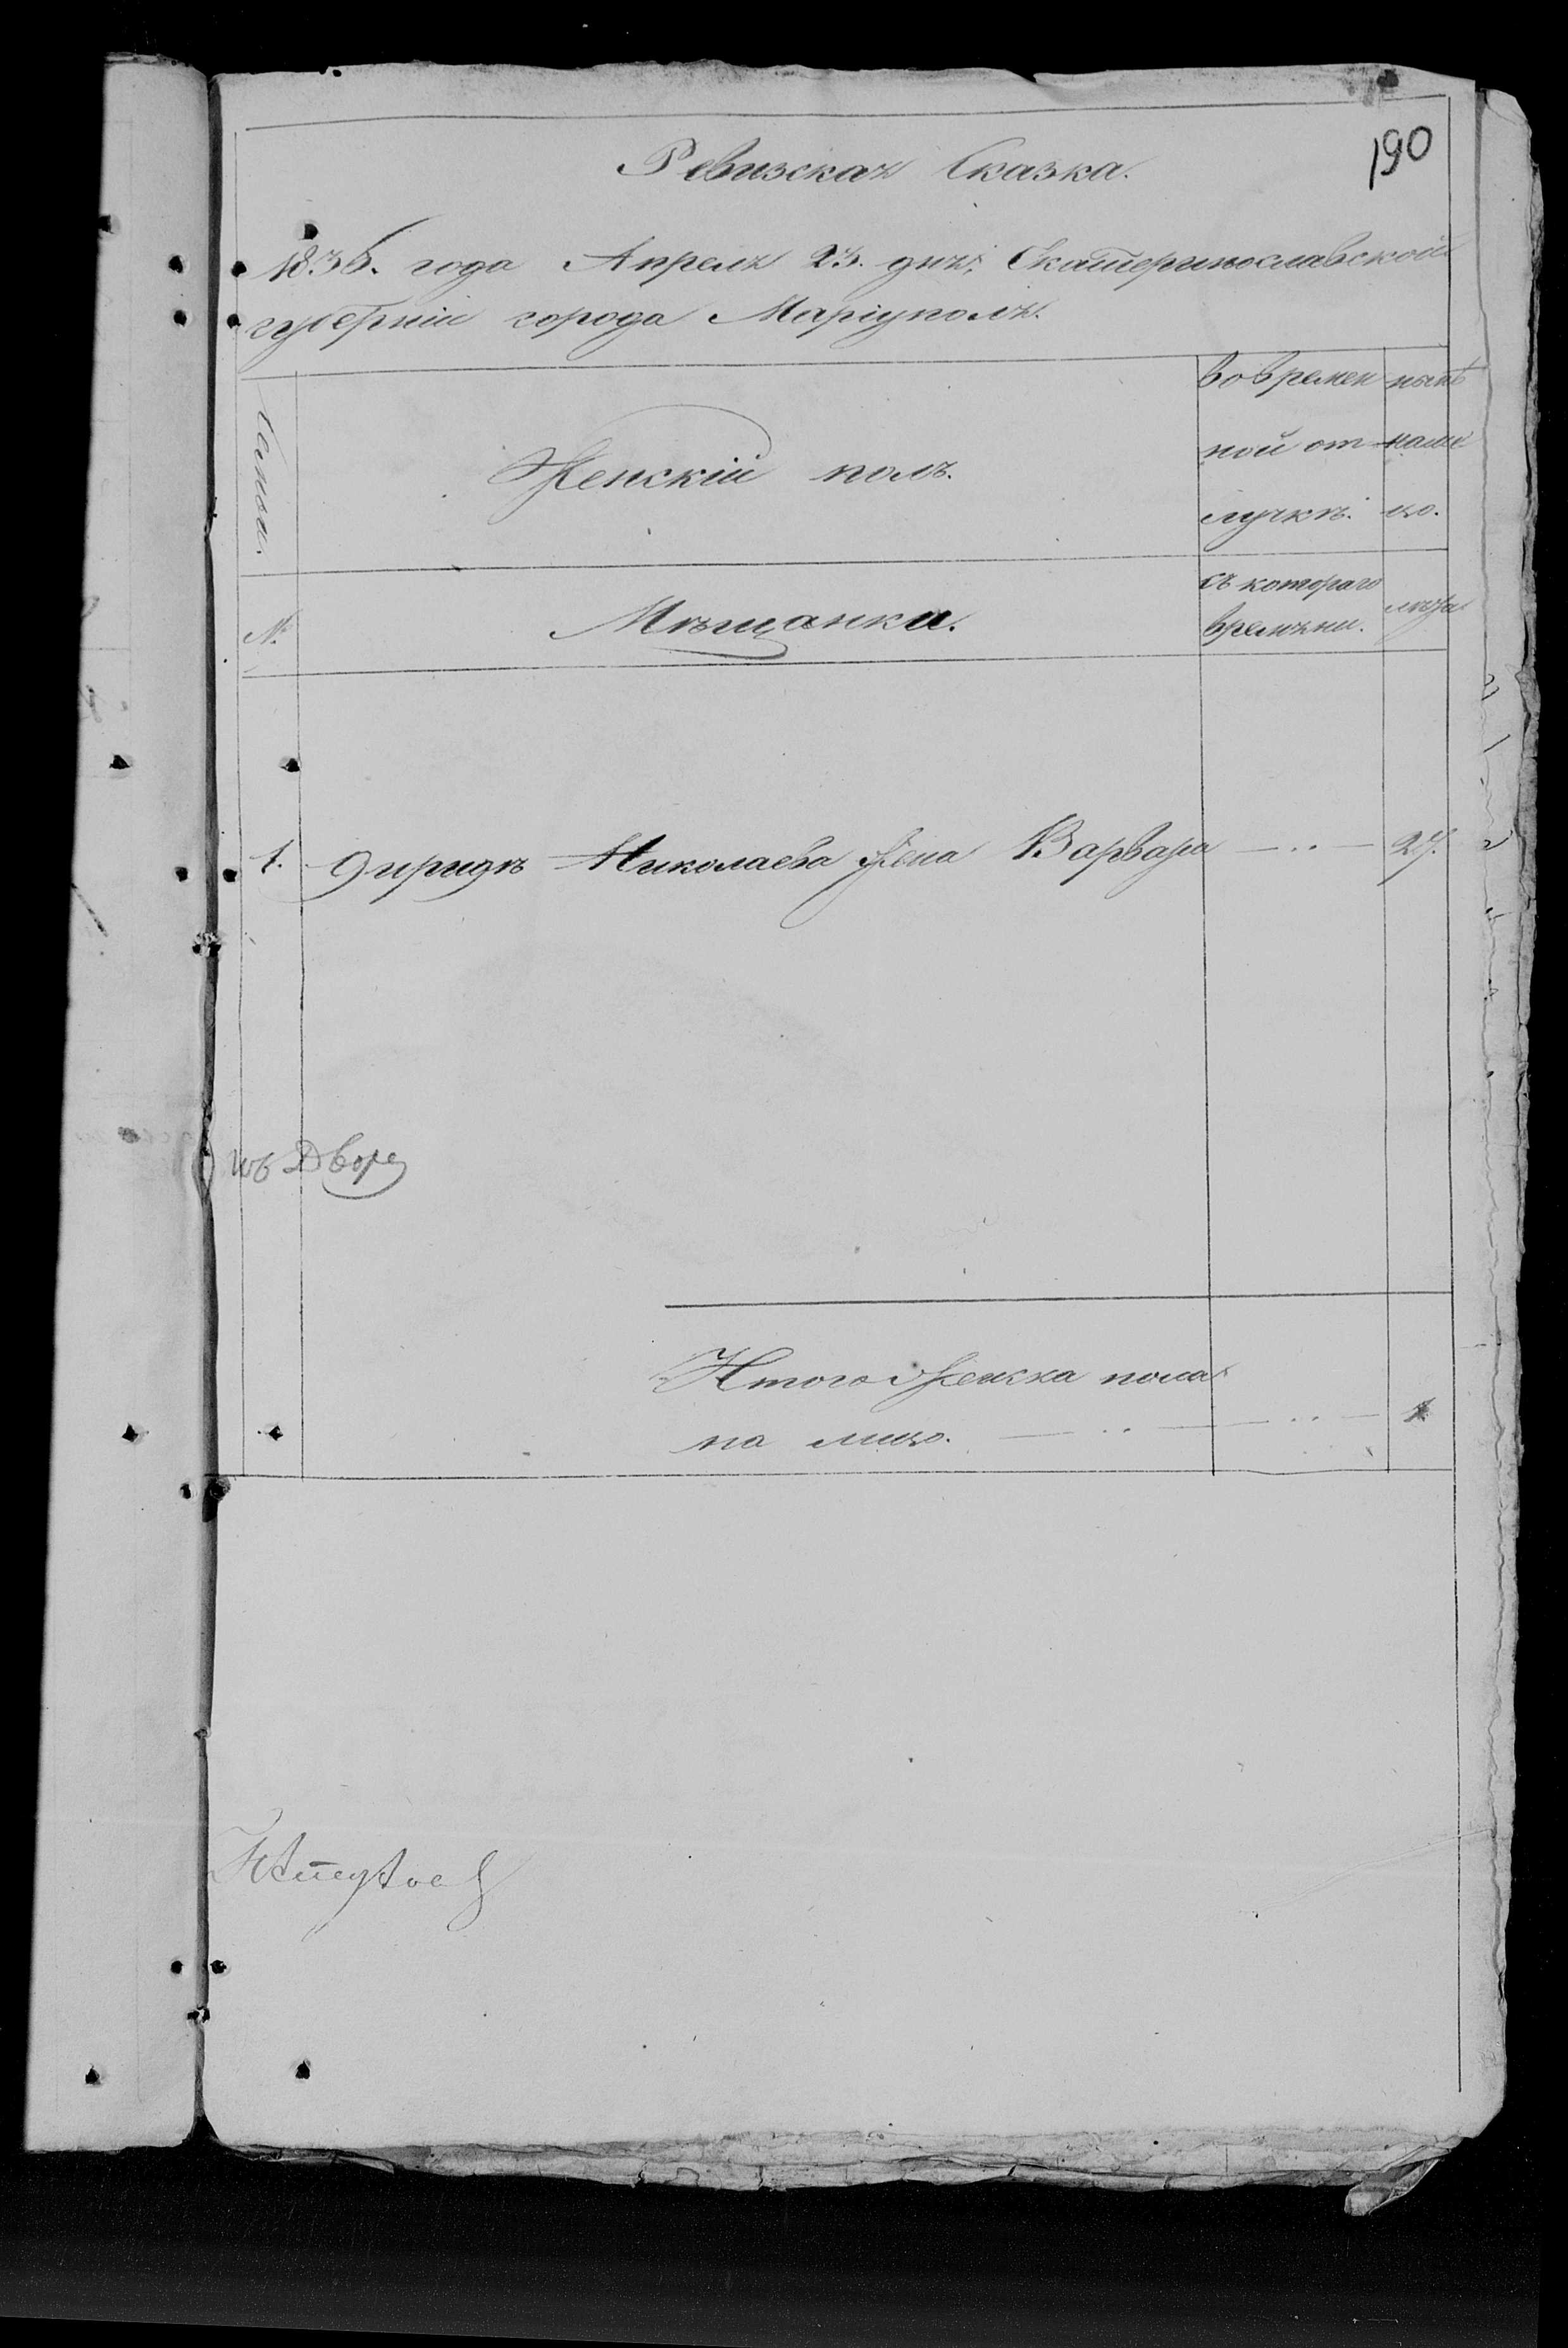 190
Ревизская Сказка.
1835. года Апреля 23. дня, Екатеринославской
губерніи города Маріуполя.
Семьи.
Женскій полъ.
Во времен
ной от
лучкѣ.
нынѣ
на ли
цо.
№
Мѣщанки.
съ котораго
времѣни.
лѣта
1. Николаева жена Варвара — .. — 27.
Итого женска пола
на лицо. — .. — .. — 1